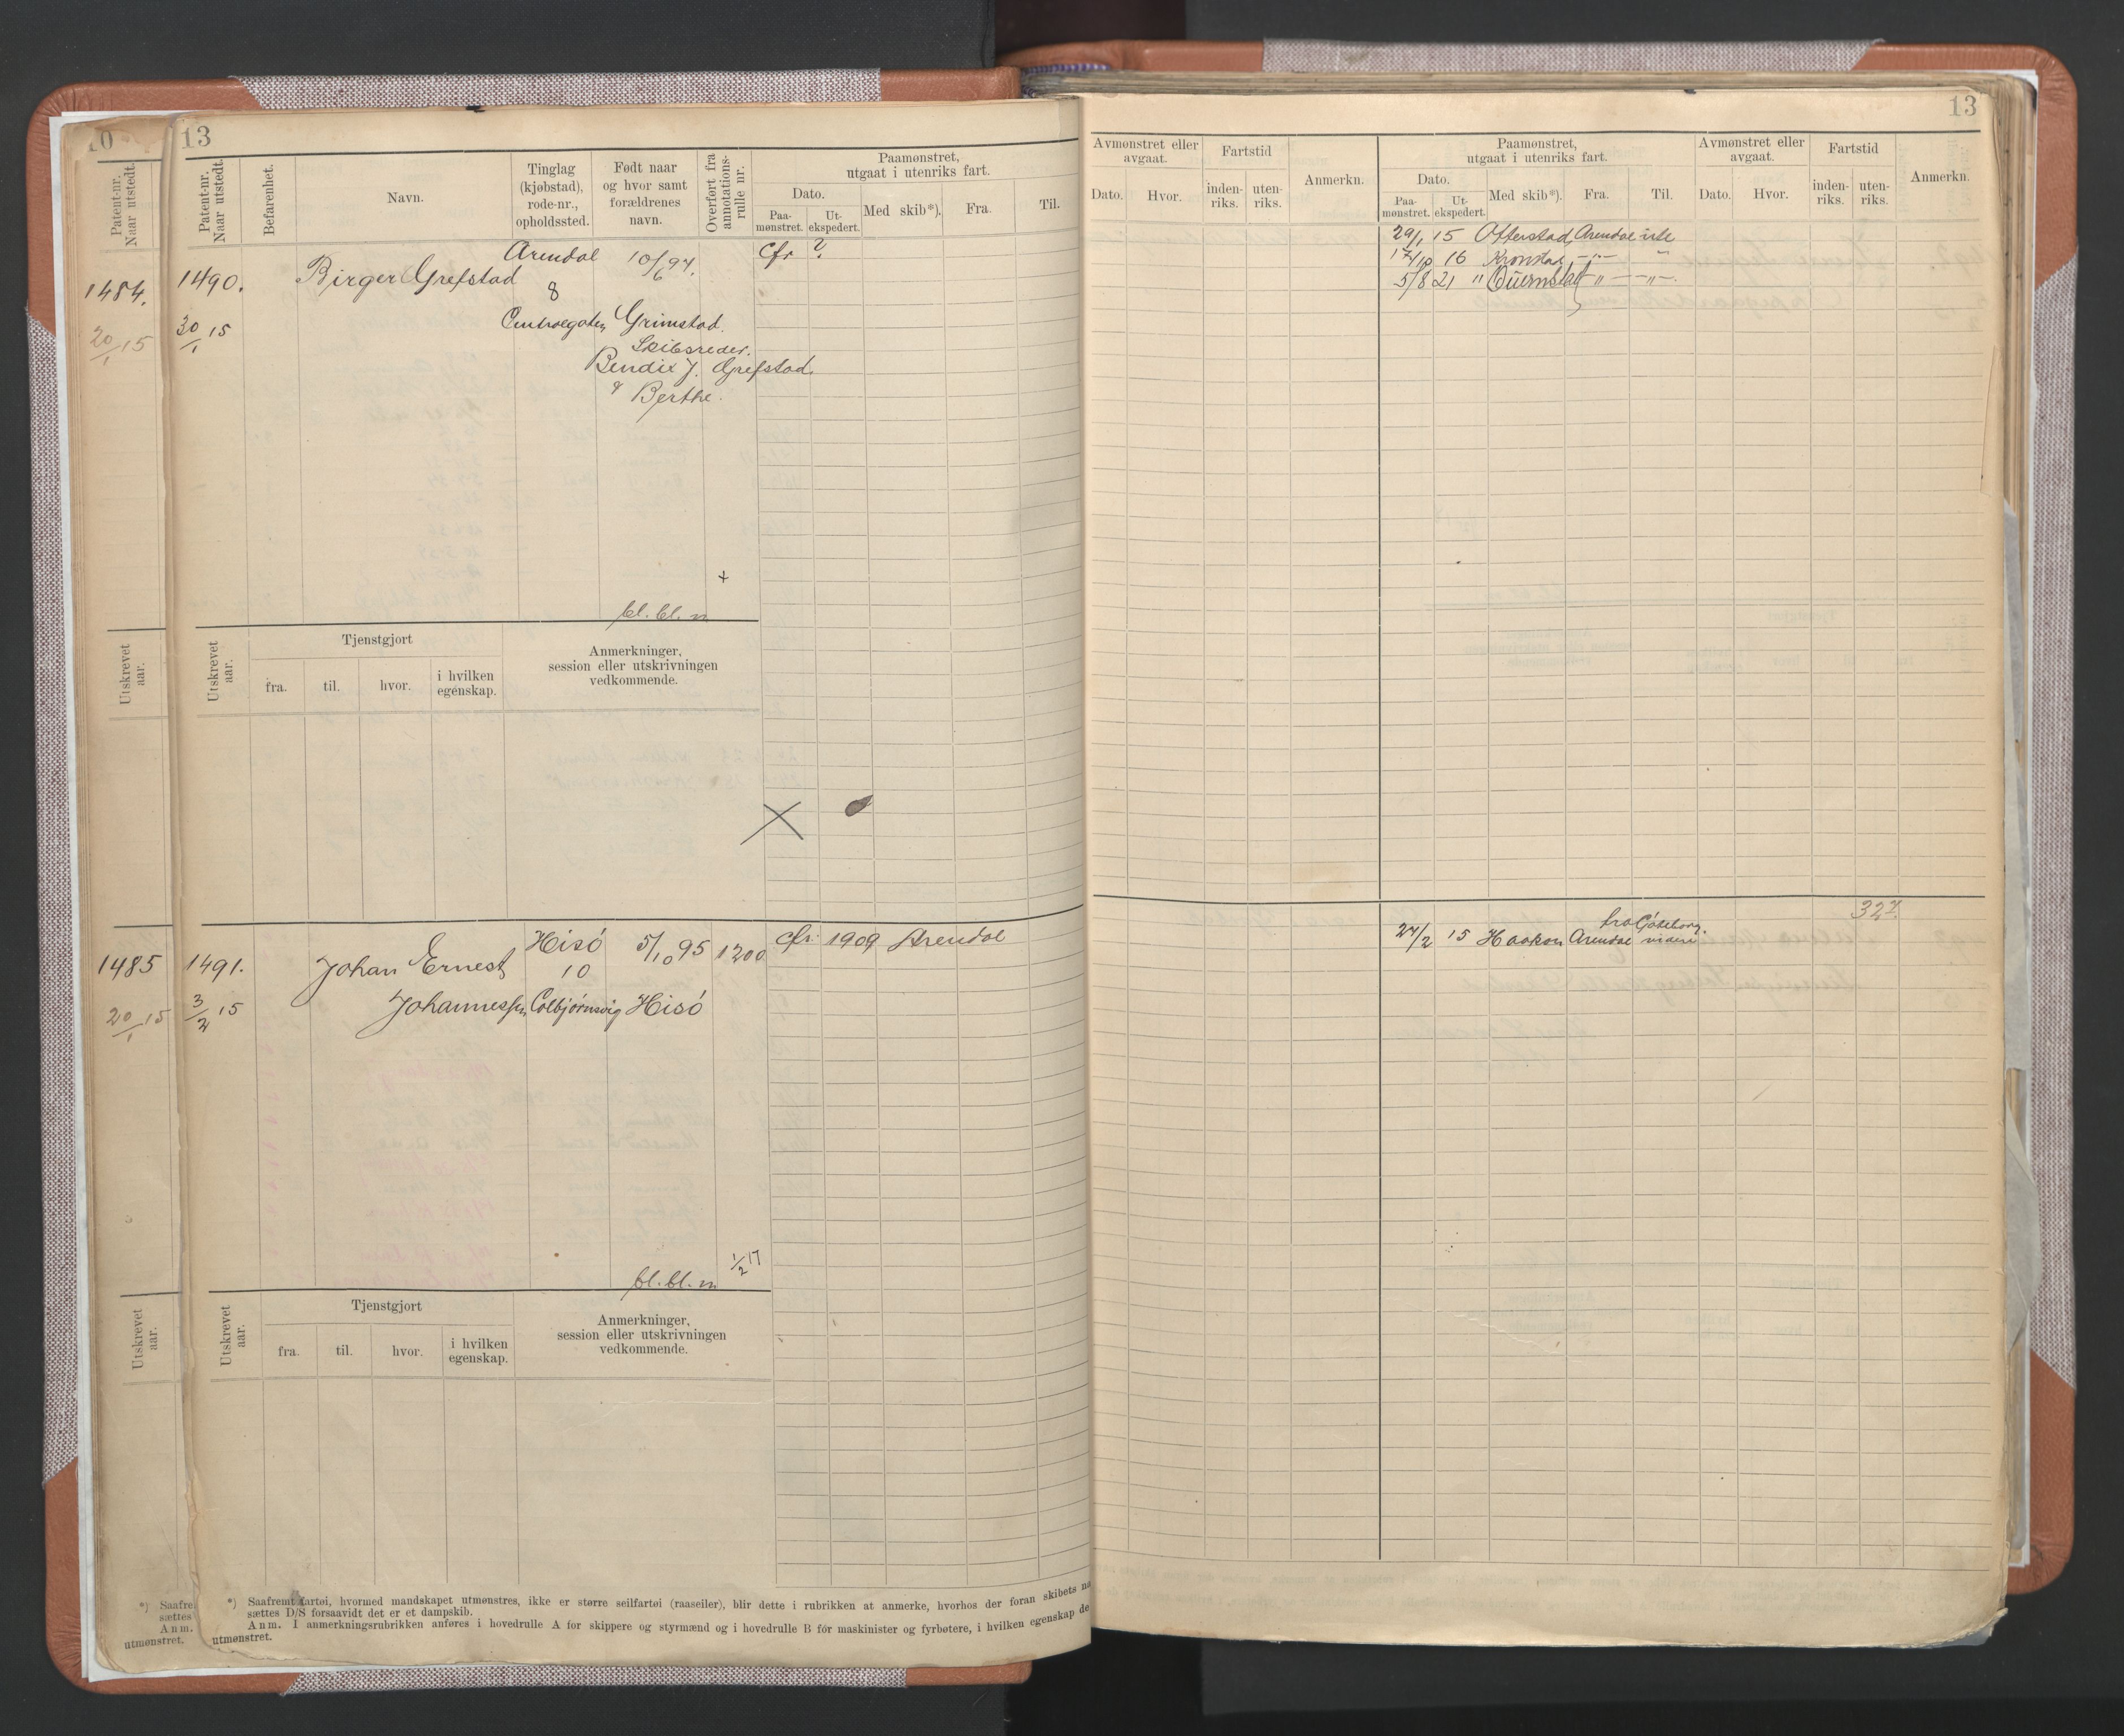 10
13
Patent-nr.
Naar utstedt.
Patent-nr.
Naar utstedt.
Befarenhet.
Navn.
Tinglag
(kjøbstad),
rode-nr.,
opholdssted.
Født naar
og hvor samt
forældrenes
navn.
Overført fra
annotations-
rulle nr.
Paamønstret,
utgaat i utenriks fart.
Dato.
Paa-
mønstret.
Ut-
ekspedert.
Med skib*).
Fra.
Til.
1484.
20/1 15
1490.
30/1 15
Birger Grefstad
Arendal
8
Centralgaten
10/6 97.
Grimstad.
Skibsreder.
Bendix J. Grefstad
& Berthe.
cfr ?
+
bl. bl. m
Utskrevet
aar.
Utskrevet
aar.
Tjenstgjort
fra.
til.
hvor.
i hvilken
egenskap.
Anmerkninger,
session eller utskrivningen
vedkommende.
1485
20/1 15
1491.
3/2 15
Johan Ernest
Johannessen
Hisö
10
Colbjørnsvig
5/10 95
Hisö
1200
cfr 1909 Arendal
1/2 17
bl. bl. m
Utskrevet
aar.
Utskrevet
aar.
Tjenstgjort
fra.
til.
hvor.
i hvilken
egenskap.
Anmerkninger,
session eller utskrivningen
vedkommende.
*) Saafre
sættes
Anm.
utmønstret.
*) Saafremt fartøi, hvormed mandskapet utmønstres, ikke er større seilfartøi (raaseiler), blir dette i rubrikken at anmerke, hvorhos der foran skibets na
sættes D/S forsaavidt det er et dampskib.
Anm. I anmerkningsrubrikken anføres i hovedrulle A for skippere og styrmænd og i hovedrulle B for maskinister og fyrbøtere, i hvilken egenskap de
utmønstret.
13
Avmønstret eller
avgaat.
Dato.
Hvor.
Fartstid
inden-
riks.
uten-
riks.
Anmerkn.
Paamønstret,
utgaat i utenriks fart.
Dato.
Paa-
mønstret.
Ut-
ekspedert.
Med skib*).
Fra.
Til.
Avmønstret eller
avgaat.
Dato.
Hvor.
Fartstid
inden-
riks.
uten-
riks.
Anmerkn.
29/1 15 Offerstad Arendal
17/10 16 Kronstad -"- "
5/8 21 " -"- -"-
24/2 15 Haakon Arendal
fra Göteborg
327